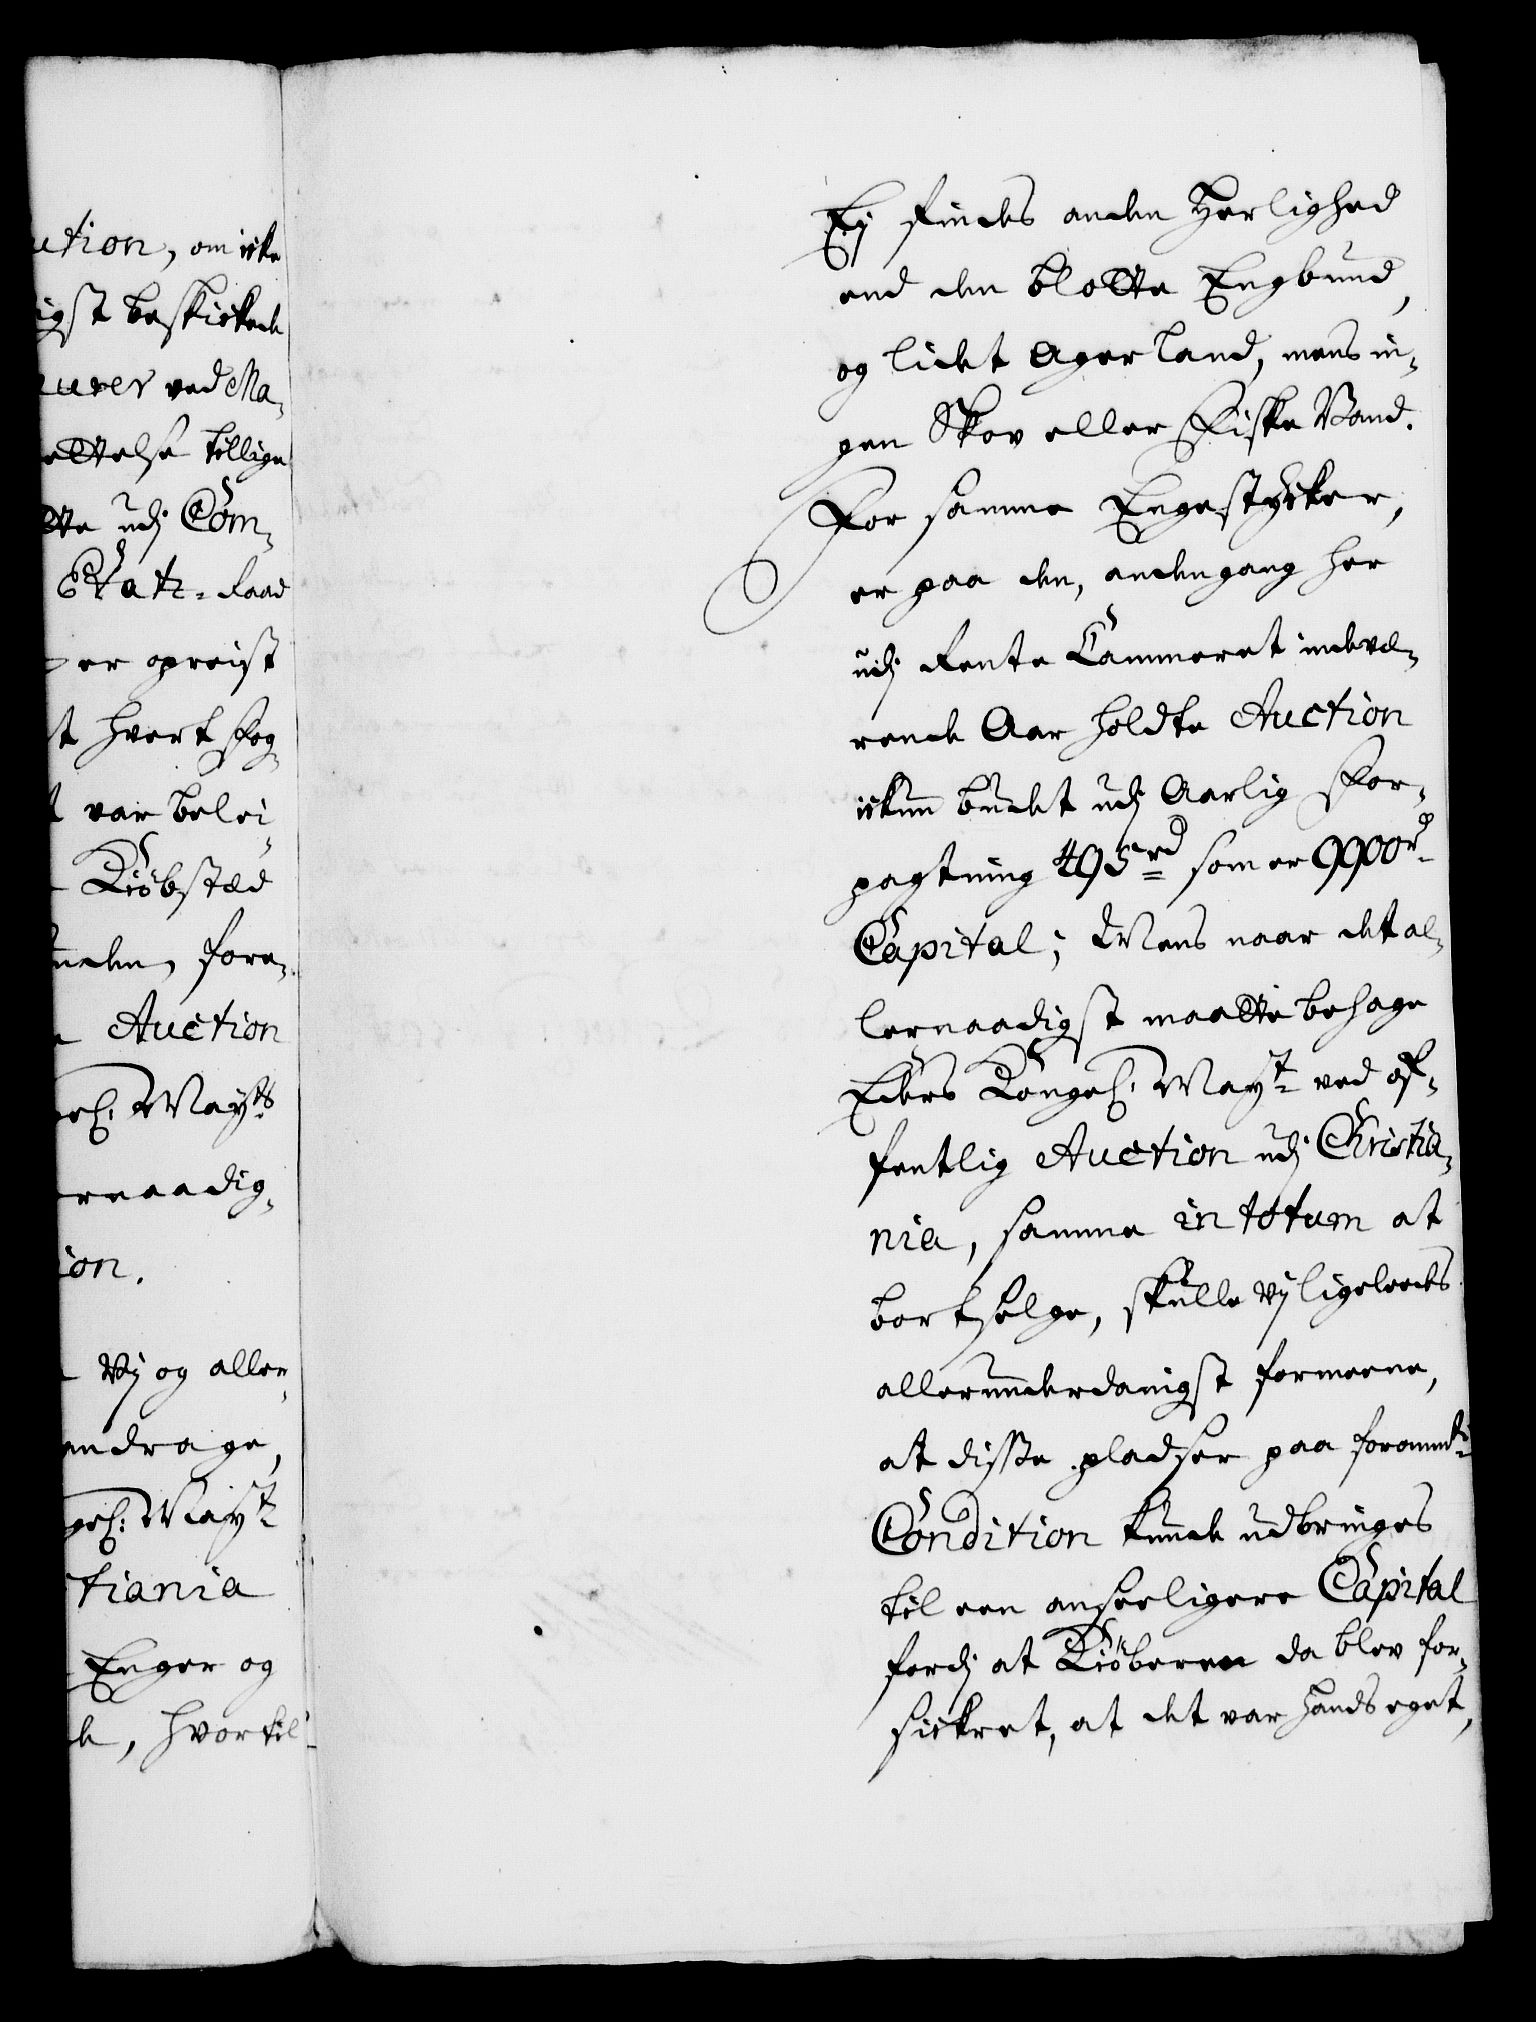 ution, om icke
igst beskickede
urer ved Ma-
ettelse tillige
tte udj Com-
Etatz-Raad
er opreist
st hvert Fog-
t var belei-
Kiøbstæd
nden, fore-
Auction
gel: Mayts
ernaadig-
ion.
Vj og aller-
endrage,
gel: Mayt
tiania
Enger og
de, hvortil
Ej findes anden Herlighed
end den blotte Engbund,
og lidet Agerland, mens in-
gen Skov eller Fiske Vand.
For samme Engestycker,
er paa den, andengang her
udj Rente Cammeret indevæ-
rende Aar holdte Auction
ickun budet udj Aarlig For-
pagtning 495 rd som er 9900 rd
Capital; Mens naar det al-
lernaadigst maatte behage
Eders Kongel: Mayt ved of-
fentlig Auction udj Christia-
nia, samme in totum at
bortselge, skulle Vj ligeleedes
allerunderdanigst formeene,
at disse pladser paa foromte
Condition kunde udbringes
til een anseeligere Capital
fordj at Kiøberen da blev for-
sickret, at det var hands eget,